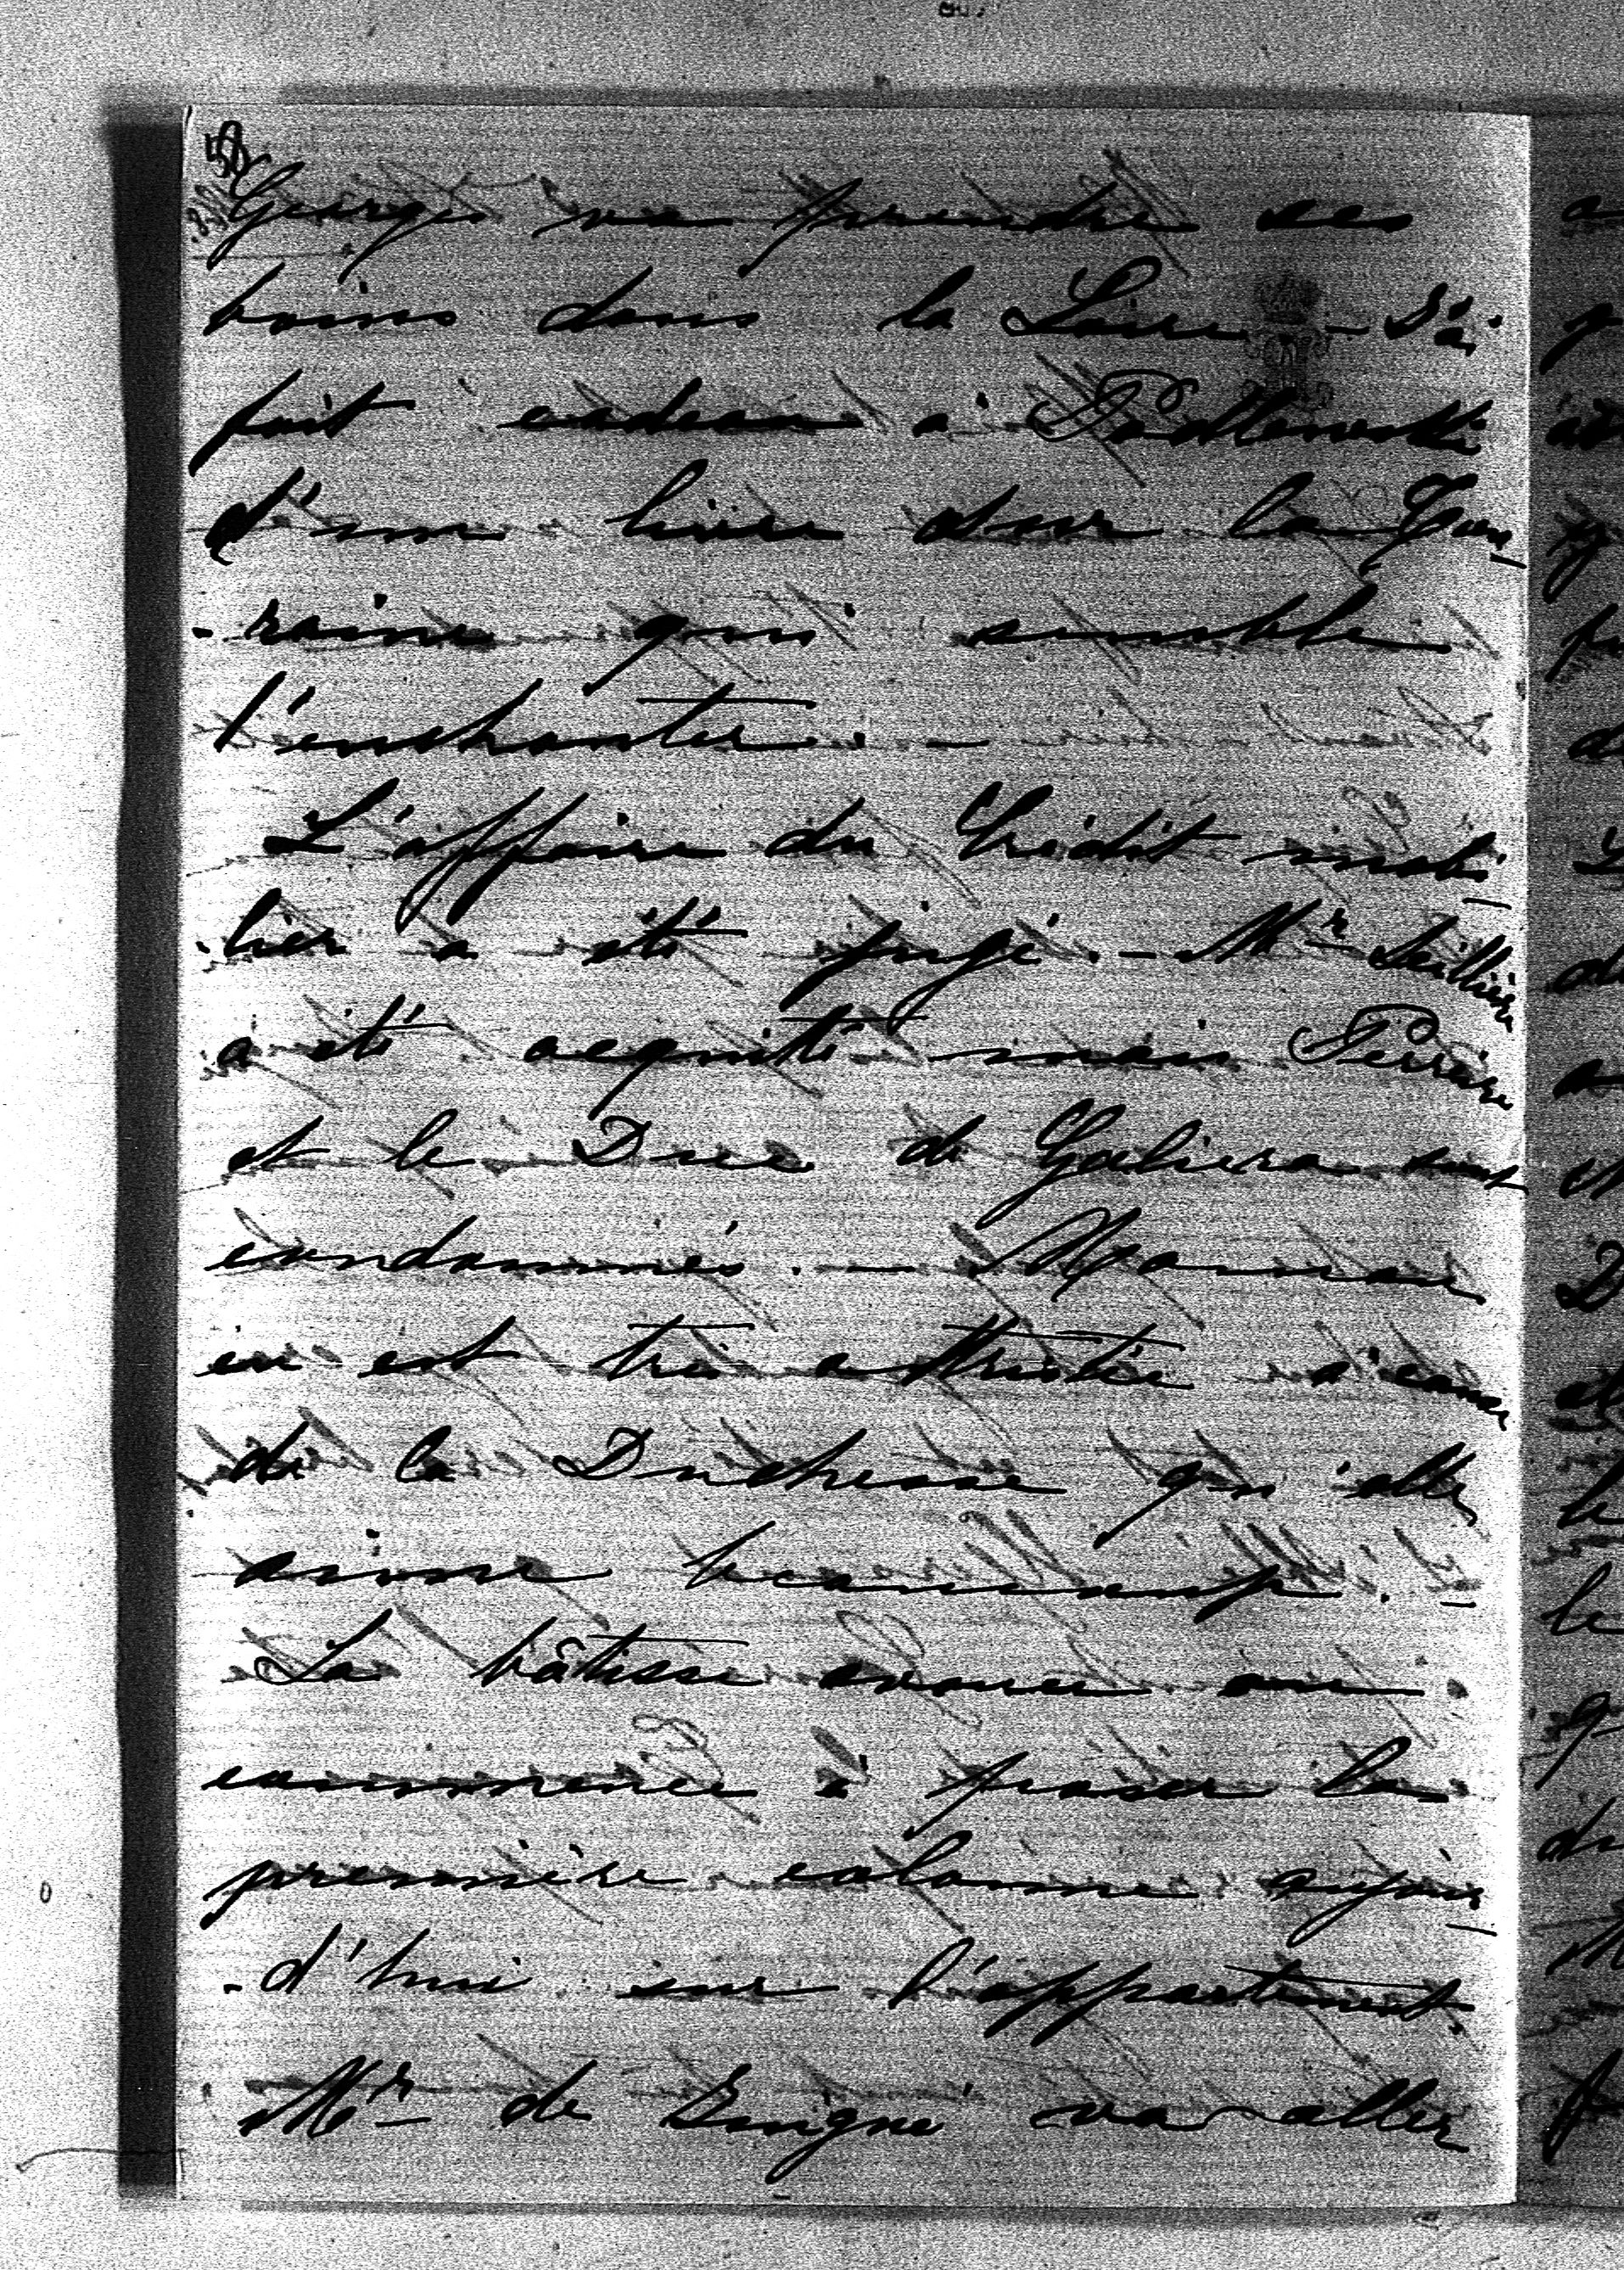 58
Georges va prendre ses
bains dans la Loire - J'ai
fait cadeau à Podlewski
d'un livre sur la Tou
-raine qui semble
l'enchanter. -
L'affaire du Crédit mobi
-lier a été jugé. - Mr Seillière
a été acquitté mais Perreire
et le Duc de Galiera sont
condamnés. - Maman
en est très attristée à cause
de la Duchesse qu'elle
aime beaucoup. -
La bâtisse avance on
commence à poser la
première colonne aujour
-d'hui sur l'appartement.
Mr de Quigné va aller